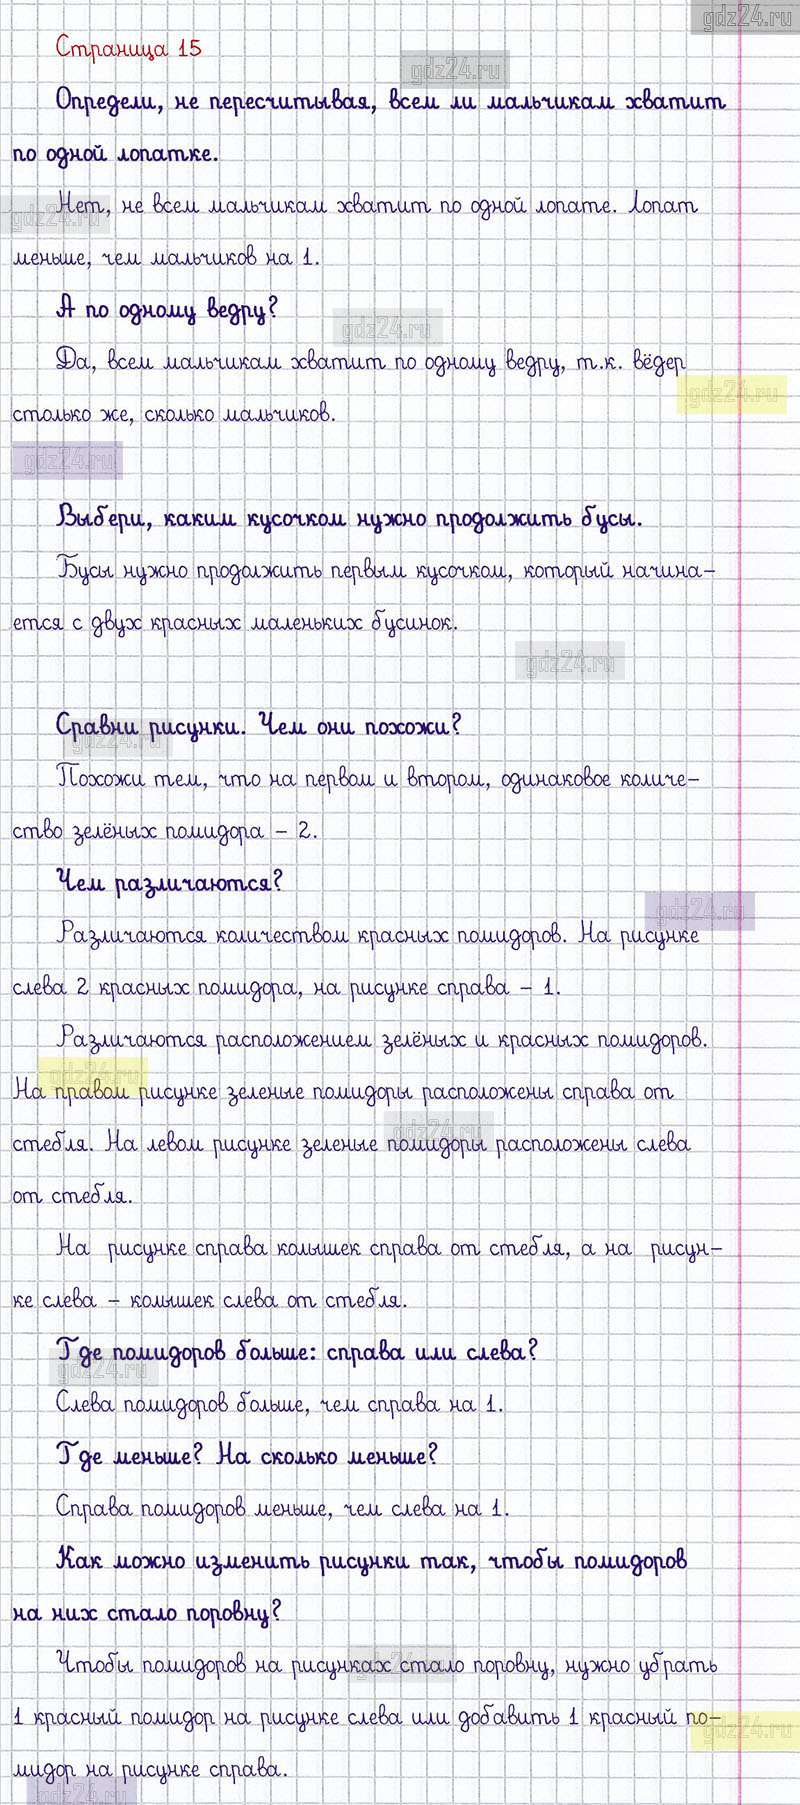 gdz24.ru
Страница 15
gdz24.ru
Определи, не пересчитывая, всем ли мальчикам хватит
по одной лопатке.
Нет, не всем мальчикам хватит по одной лопате. Лопат
gdz24.ru
меньше, чем мальчиков на 1.
А по одному ведру?
gdz24.ru
Да, всем мальчикам хватит по одному ведру, т.к. вёдер
gdz24.ru
столько же, сколько мальчиков.
gdz24.ru
Выбери, каким кусочком нужно продолжить бусы.
Бусы нужно продолжить первым кусочком, который начина-
ется с двух красных маленьких бусинок.
gdz24.ru
Сравни рисунки. Чем они похожи?
gdz24.ru
Похожи тем, что на первом и втором, одинаковое количе-
ство зелёных помидора - 2.
Чем различаются?
gdz24.ru
Различаются количеством красных помидоров. На рисунке
слева 2 красных помидора, на рисунке справа - 1.
Различаются расположением зелёных и красных помидоров.
gdz24.ru
На правом рисунке зеленые помидоры расположены справа от
gdz24.ru
стебля. На левом рисунке зеленые помидоры расположены слева
от стебля.
На рисунке справа колышек справа от стебля, а на рисун-
ке слева - колышек слева от стебля.
Где помидоров больше: справа или слева?
gdz24.ru
Слева помидоров больше, чем справа на 1.
Где меньше? На сколько меньше?
Справа помидоров меньше, чем слева на 1.
Как можно изменить рисунки так, чтобы помидоров
на них стало поровну?
Чтобы помидоров на рисунках стало поровну, нужно убрать
gdz24.ru
1 красный помидор на рисунке слева или добавить 1 красный по-
gdz24.ru
мидор на рисунке справа.
gdz24.ru